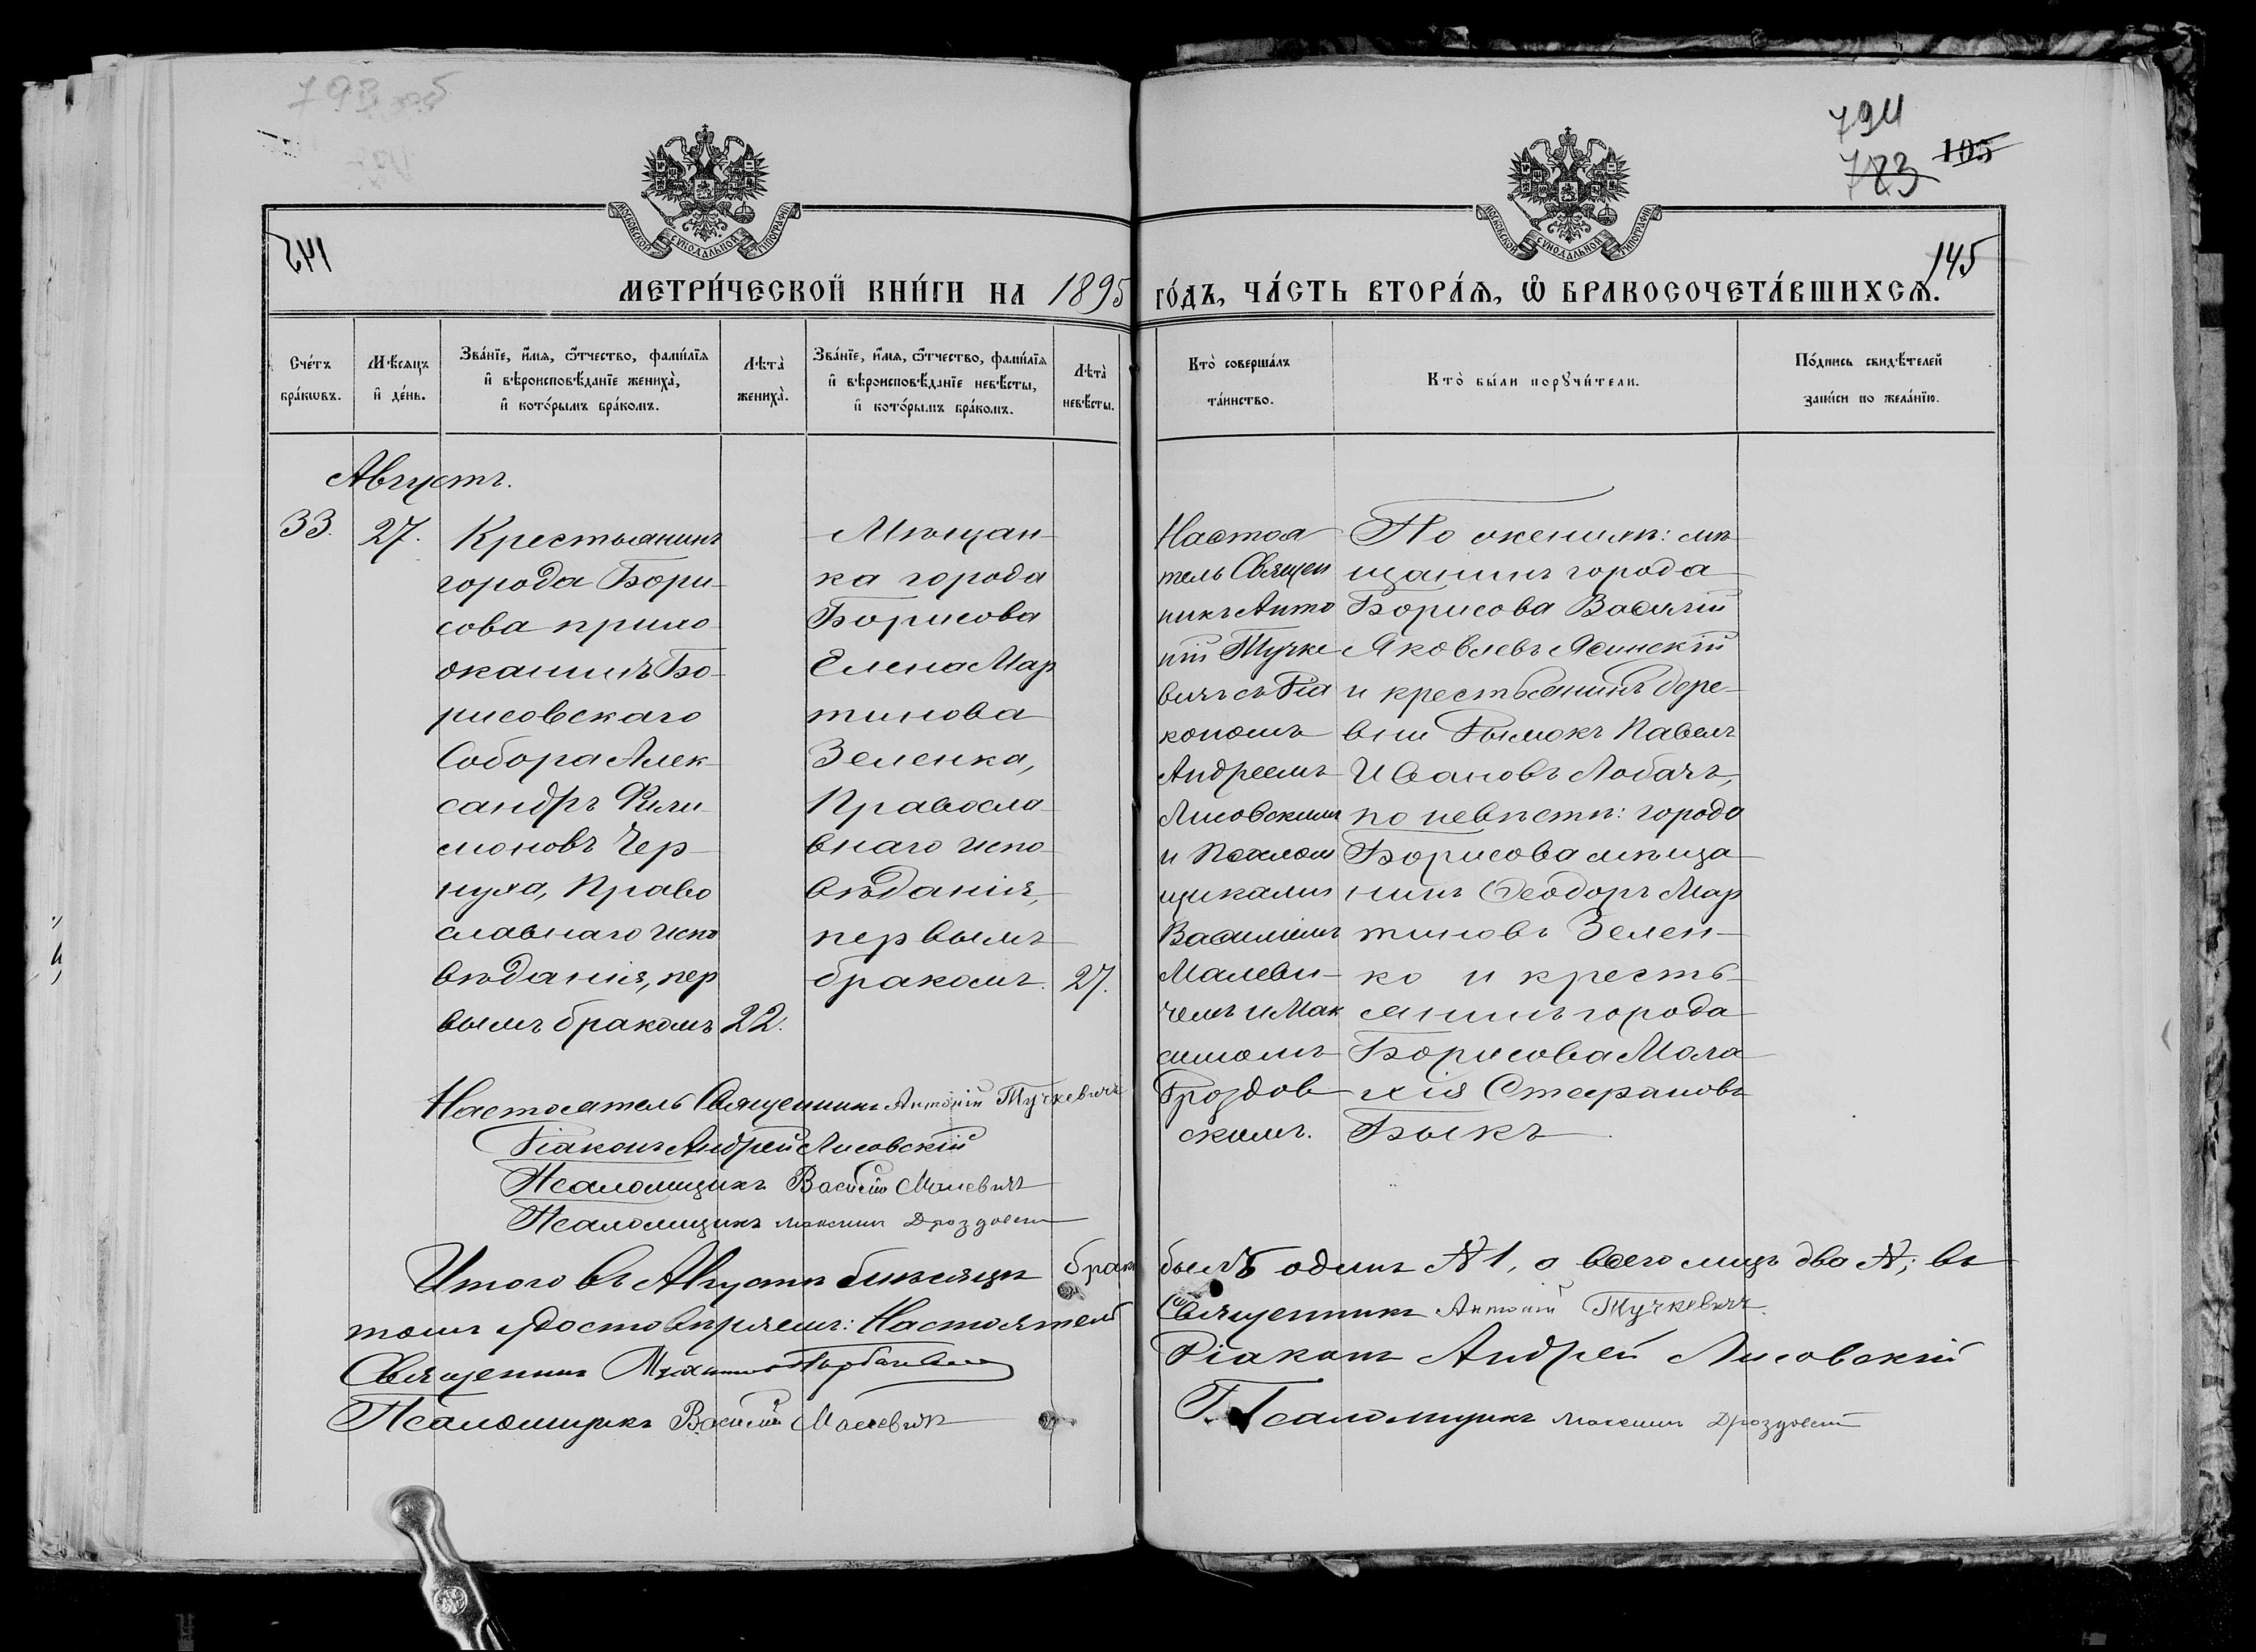 794
783 105
МОСКОВСКОЙ СѴНОДАЛЬНОЙ ТИПОГРАФІИ
МОСКОВСКОЙ СѴНОДАЛЬНОЙ ТИПОГРАФІИ
145
МЕТРИ́ЧЕСКОЙ КНИ́ГИ НА 1895 ГО́ДЪ, ЧА́СТЬ ВТОРА́Ѧ, Ѽ БРАКОСОЧЕТА́ВШИХСѦ.
Сче́тъ бра́кѡвъ.
Мѣ́сяцъ и҆ де́нь.
Зва́нїе, и҆́мя, ѻ҆́тчество, фами́лїя и҆ вѣроисповѣ́данїе жениха̀, и҆ кото́рымъ бра́комъ.
Лѣта̀ жениха̀.
Зва́нїе, и҆́мя, ѻ҆́тчество, фами́лїя и҆ вѣроисповѣ́данїе невѣ́сты, и҆ кото́рымъ бра́комъ.
Лѣта̀ невѣ́сты.
Кто̀ соверша́лъ та́инство.
Кто̀ бы́ли порꙋчи́тели.
По́дпись свидѣ́телей за́писи по жела́нїю.
Августъ.
33. 27.
Крестьянинъ
города Бори-
сова прихо-
жанинъ Бо-
рисовскаго
Собора Алек-
сандръ Фили-
моновъ Чер-
нуха, Право
славнаго испо
вѣданія, пер
вымъ бракомъ 22.
Мѣщан-
ка города
Борисова
Елена Мар
тинова
Зеленка,
Правосла-
внаго испо-
вѣданія,
первымъ
бракомъ. 27.
Настоя
тель Священ
никъ Анто
ній Тучке
вичъ съ Діа
кономъ
Андреемъ
Лисовскимъ
и Псалом
щиками
Василіемъ
Малеви-
чемъ и Мак
симомъ
Дроздов
скимъ.
По женихѣ: мѣ
щанинъ города
Борисова Василій
Яковлевъ Ясинскій
и крестьянинъ дере-
вни Дымокъ Павелъ
Ивановъ Лобачъ,
по невѣстѣ: города
Борисова мѣща-
нинъ Ѳеодоръ Мар
тиновъ Зелен-
ко и кресть-
янинъ города
Борисова Мала
хія Стефановъ
Быкъ
Настоятель Священникъ Антоній Тучкевичъ
Діаконъ Андрей Лисовскій
Псаломщикъ Василій Малевичъ
Псаломщикъ Максимъ Дроздовскій
Итого въ Августѣ мѣсяцѣ бракъ былъ одинъ № 1, а всего лицъ два №; въ
томъ удостовѣряемъ: Настоятель
Священникъ Антоній Тучкевичъ.
Священникъ
Діаконъ Андрей Лисовскій
Псаломщикъ Василій Малевичъ
Псаломщикъ Максимъ Дроздовскій